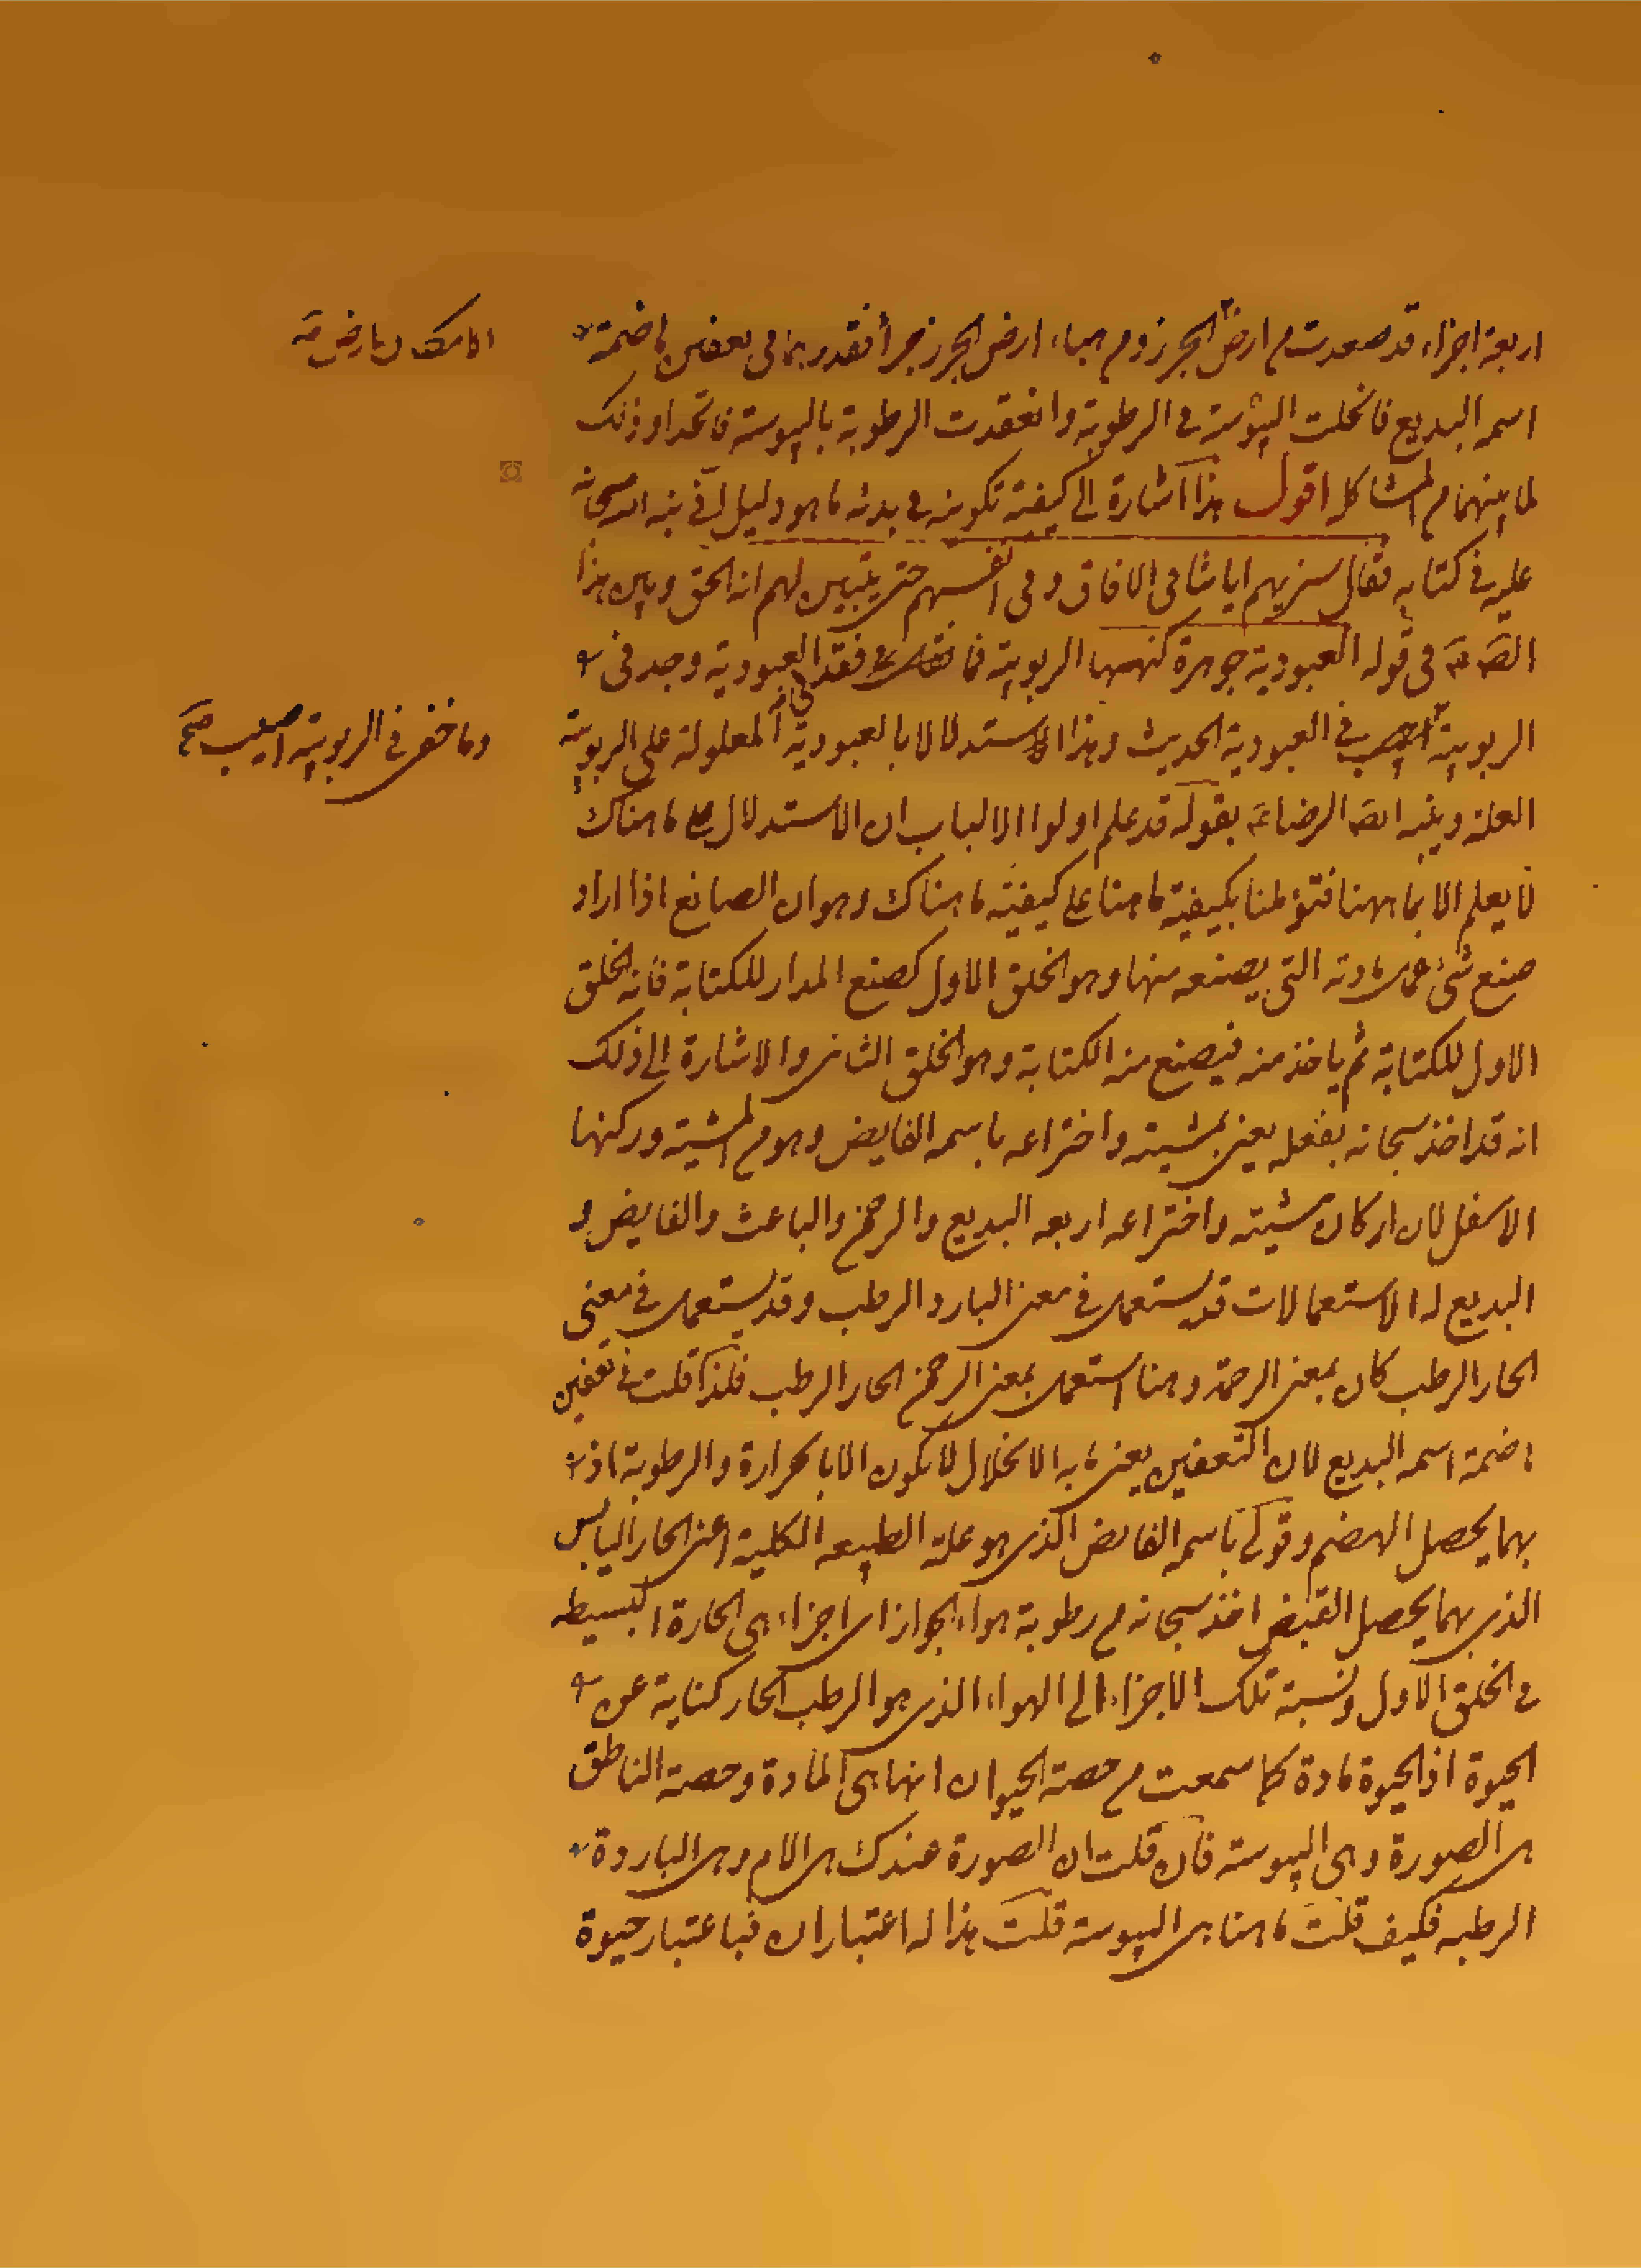 اربعة اجزاء قد صعدت من ارض الجرز ومن هباء ارض الجرز جزأ فقدرهما فى تعفين هاضمة
الامكان بارض
اسمه البديع فانحلت اليبوسة فى الرطوبة وانعقدت الرطوبة باليبوسة فاتحدا وذلك
لما بينهما من المشاكل اقول هذا اشارة الى كيفية تكوينه فى بدئه ما هو دليل نبه الله سبحانه
عليه فى كتابه فقال سنريهم اياتنا فى الافاق وفى انفسهم حتى يتبين لهم انه الحق وبين هذا
الص ع فى قوله العبودية جوهرة كنهها الربوبية فما فقد فى العبودية وجد فى
الربوبية اصيب فى العبودية الحديث وهذا الاستدلالا بالعبودية المعلولة على الربوبية
وما خفى فى الربوبية اصيب صح
العلة ونبه ايضا الرضا ع بقوله قد علم اولوا الالباب ان الاستدلال على ما هناك
لا يعلم الا بما ههنا فتؤلمنا بكيفية ما هنا على كيفية ما هناك وهو ان الصانع اذا اراد
صنع شئ عمل مادته التى يصنعه منها وهو الخلق الاول كصنع المداد للكتابة فانه الخلق
الاول للكتابة ثم ياخذ منه فيصنع منه الكتابة وهو الخلق الثانى والاشارة الى ذلك
انه قد اخذ سبحانه بفعله يعنى بمشيته واختراعه باسمه القابض وهو من المشية وركنها
الاسفل لان اركان مشيته واختراعه اربعه البديع والرحمن والباعث والقابض و
البديع له الاستعمالات قد يستعمل فى معنى البارد الرطب وقد يستعمل فى معنى
الحار الرطب كان بمعنى الرحمة وهنا استعمل بمعنى الرحمن الحار الرطب فلذا قلت فى تعفين
هاضمة اسمه البديع لان التعفين يعنى به الانحلال لا يكون الا بالحرارة والرطوبة اذ
بهما يحصل الهضم وقولى باسمه القابض الذى هو علة الطبيعه الكلية اعنى الحار اليابس
الذى بهما يحصل القبض اخذ سبحانه من رطوبة هواء الجواز اى اجزاء هى الحارة البسيطه
فى الخلق الاول ونسبة تلك الاجزاء الى الهواء الذى هو الرطب الحار كناية عن
الحيوة اذ الحيوة مادة كما سمعت من حصة الحيوان انها هى المادة وحصة الناطق
هى الصورة وهى اليبوسة فان قلت ان الصورة عندك هى الام وهى الباردة
الرطبه فكيف قلت ما هنا هى اليبوسة قلت هذا له اعتباران فباعتبار حيوة